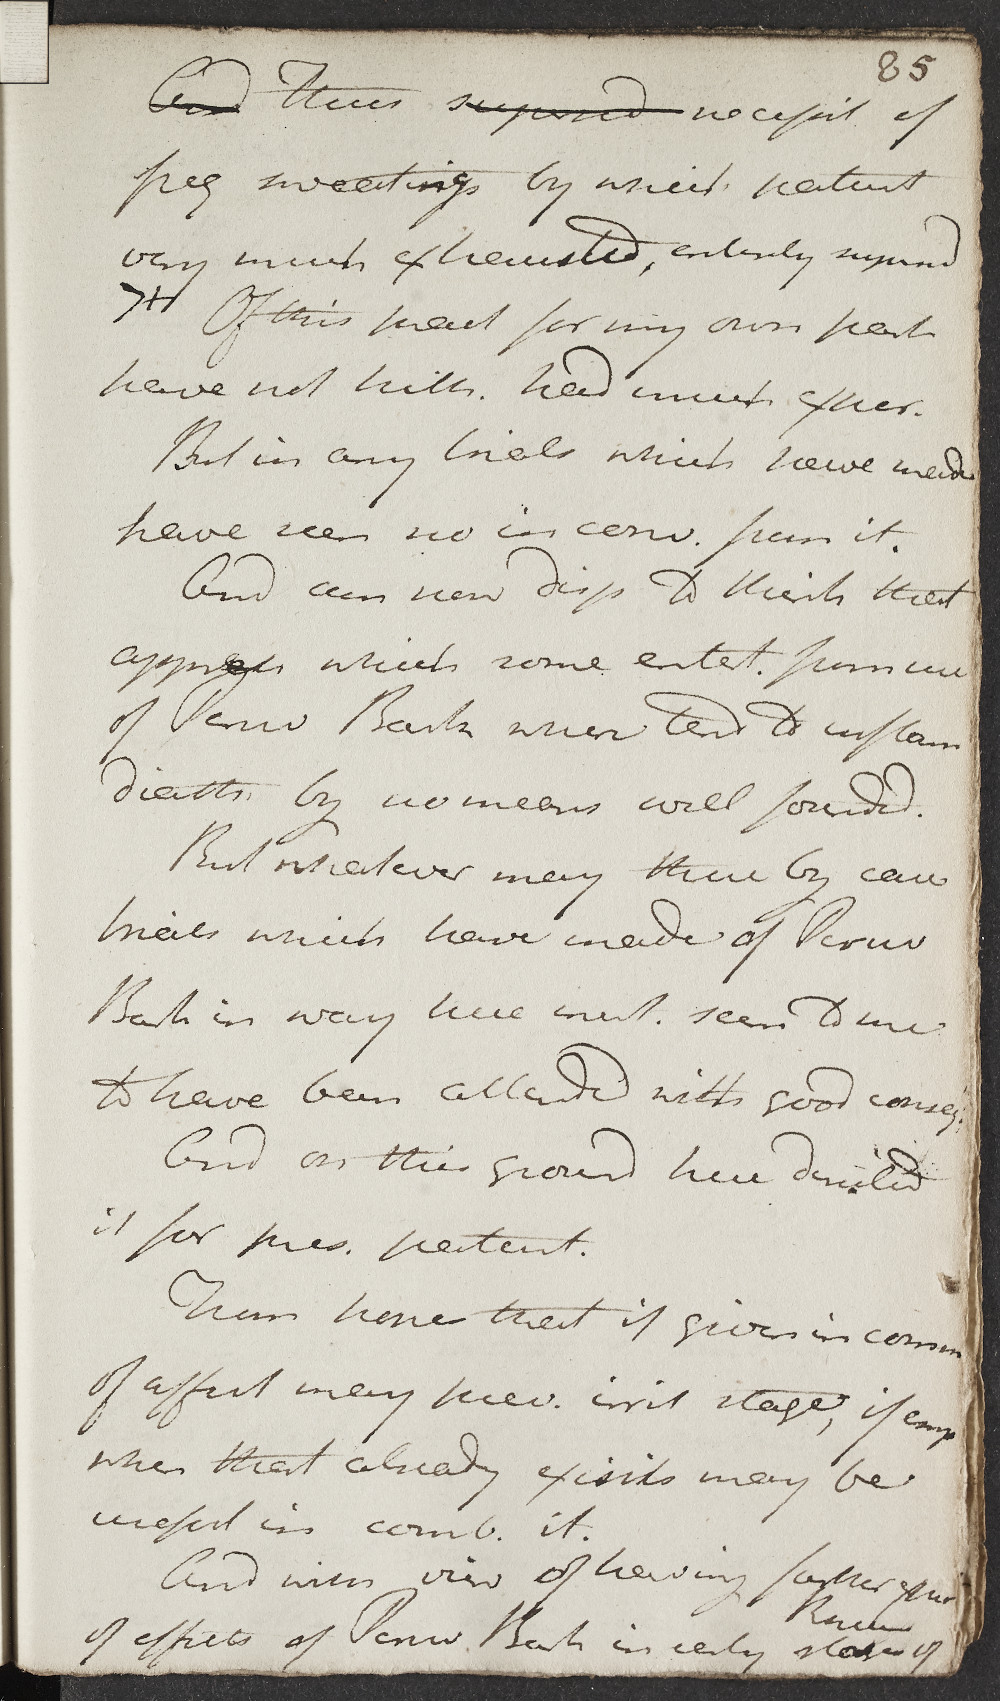 85
And Thus supersed necessit of
freq sweatings by which patient
very much exhausted, entirely supersed
7th Of this pract for my own part
have not hith. had much exper.
But in any trials which have made
have seen no in conv. from it.
And am now disp to think that
appreh which some entert. from use
of Peruv Bark when tend to inflam
diath. by no means well founded.
But whatever may there by case
trials which have made of Peruv
Bark in way here ment. seem to me
to have been attended with good conseq.
And on this ground here directed
it for pres. patient.
Then hope that if given in comm
of affect may prev. irrit stage, if emp
when that already exists may be
useful in comb. it.
And with view of having farther exper
Rheum
of effects of Peruv. Bark in early stages of